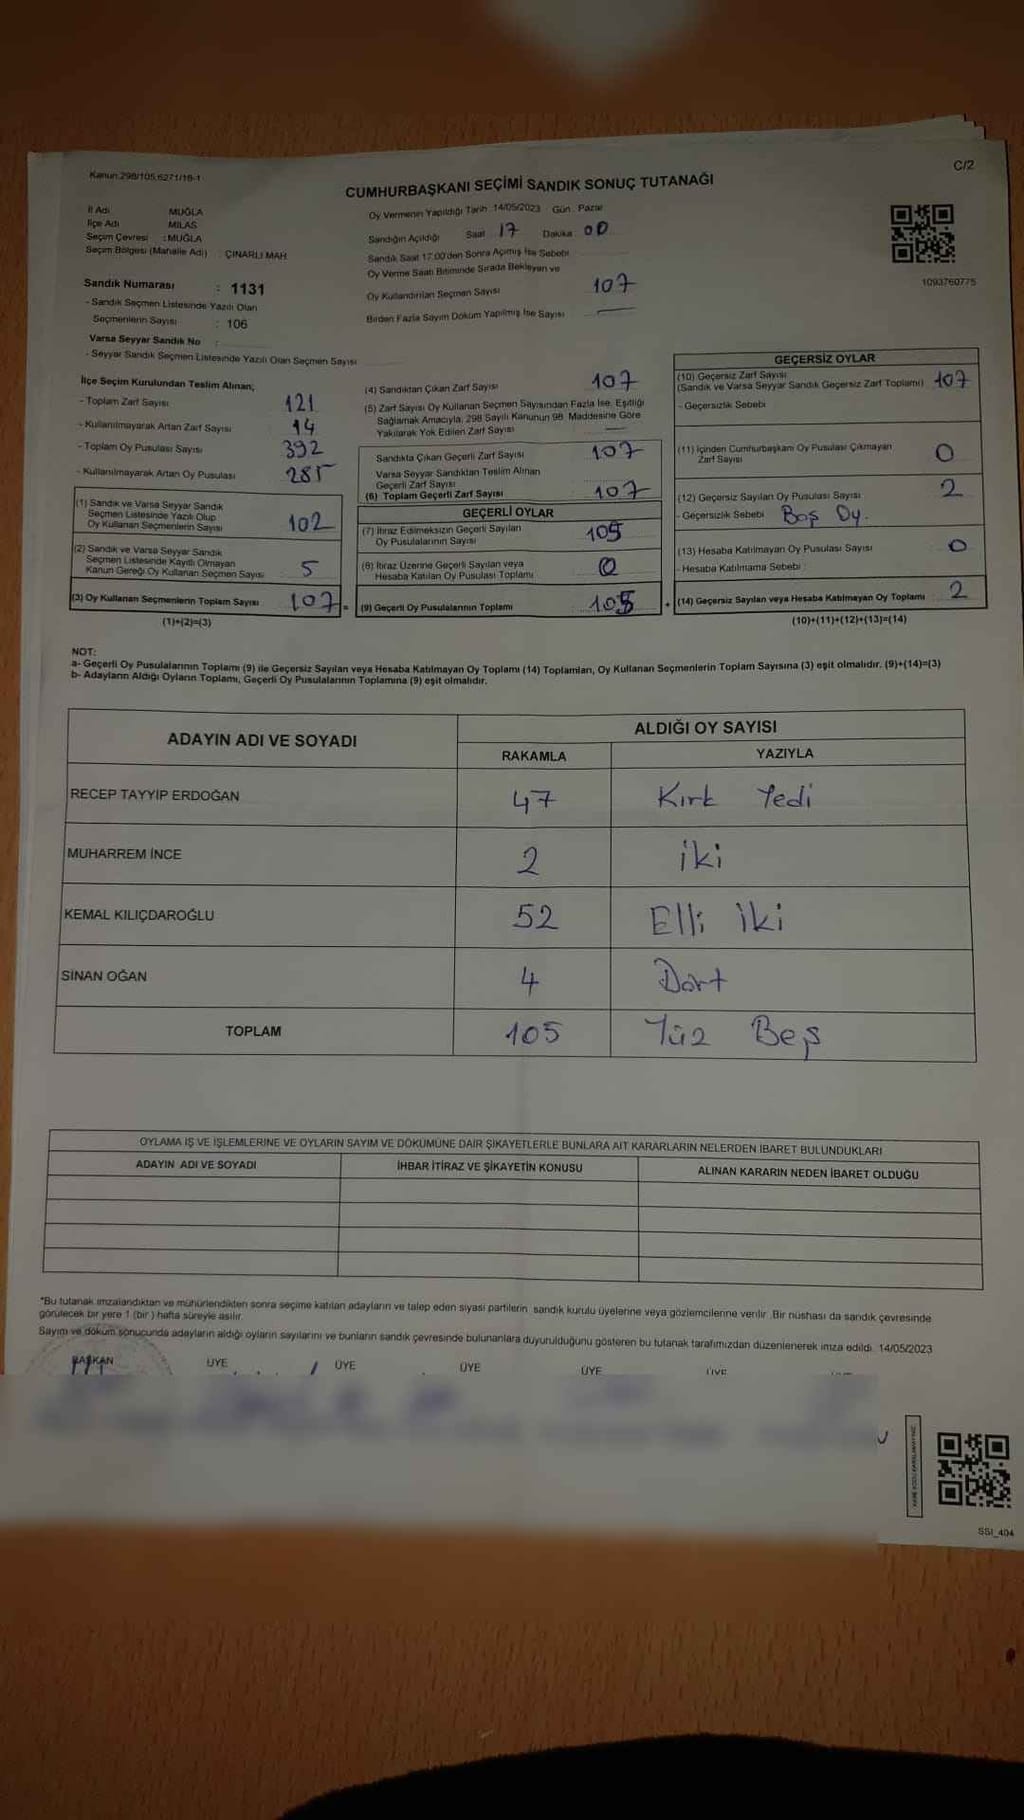 Kanun:298/105,6271/18-1
C/2
CUMHURBAŞKANI SEÇİMİ SANDIK SONUÇ TUTANAĞI
İl Adı MUĞLA
İlçe Adı MİLAS
Seçim Çevresi : MUĞLA
Seçim Bölgesi (Mahalle Adı) : ÇINARLI MAH.
Oy Vermenin Yapıldığı Tarih 14/05/2023 Gün: Pazar
Sandığın Açıldığı Saat 17 Dakika 00
Sandık Saat 17.00'den Sonra Açılmış İse Sebebi
Oy Verme Saati Bitiminde Sırada Bekleyen ve
Oy Kullandırılan Seçmen Sayısı 107
Birden Fazla Sayım Döküm Yapılmış İse Sayısı —
1093760775
Sandık Numarası : 1131
- Sandık Seçmen Listesinde Yazılı Olan
Seçmenlerin Sayısı : 106
Varsa Seyyar Sandık No :
- Seyyar Sandık Seçmen Listesinde Yazılı Olan Seçmen Sayısı
İlçe Seçim Kurulundan Teslim Alınan;
- Toplam Zarf Sayısı 121
- Kullanılmayarak Artan Zarf Sayısı 14
- Toplam Oy Pusulası Sayısı 392
- Kullanılmayarak Artan Oy Pusulası 285
(1) Sandık ve Varsa Seyyar Sandık
Seçmen Listesinde Yazılı Olup
Oy Kullanan Seçmenlerin Sayısı 102
(2) Sandık ve Varsa Seyyar Sandık
Seçmen Listesinde Kayıtlı Olmayan
Kanun Gereği Oy Kullanan Seçmen Sayısı 5
(3) Oy Kullanan Seçmenlerin Toplam Sayısı 107 =
(1)+(2)=(3)
(4) Sandıktan Çıkan Zarf Sayısı 107
(5) Zarf Sayısı Oy Kullanan Seçmen Sayısından Fazla İse, Eşitliği
Sağlamak Amacıyla, 298 Sayılı Kanunun 98. Maddesine Göre
Yakılarak Yok Edilen Zarf Sayısı —
Sandıkta Çıkan Geçerli Zarf Sayısı 107
Varsa Seyyar Sandıktan Teslim Alınan
Geçerli Zarf Sayısı
(6) Toplam Geçerli Zarf Sayısı 107
GEÇERLİ OYLAR
(7) İtiraz Edilmeksizin Geçerli Sayılan
Oy Pusulalarının Sayısı 105
(8) İtiraz Üzerine Geçerli Sayılan veya
Hesaba Katılan Oy Pusulası Toplamı 0
(9) Geçerli Oy Pusulalarının Toplamı 105 +
GEÇERSİZ OYLAR
(10) Geçersiz Zarf Sayısı
(Sandık ve Varsa Seyyar Sandık Geçersiz Zarf Toplamı) 107
- Geçersizlik Sebebi
(11) İçinden Cumhurbaşkanı Oy Pusulası Çıkmayan
Zarf Sayısı 0
(12) Geçersiz Sayılan Oy Pusulası Sayısı 2
- Geçersizlik Sebebi Boş Oy.
(13) Hesaba Katılmayan Oy Pusulası Sayısı 0
- Hesaba Katılmama Sebebi :
(14) Geçersiz Sayılan veya Hesaba Katılmayan Oy Toplamı 2
(10)+(11)+(12)+(13)=(14)
NOT:
a- Geçerli Oy Pusulalarının Toplamı (9) ile Geçersiz Sayılan veya Hesaba Katılmayan Oy Toplamı (14) Toplamları, Oy Kullanan Seçmenlerin Toplam Sayısına (3) eşit olmalıdır. (9)+(14)=(3)
b- Adayların Aldığı Oyların Toplamı, Geçerli Oy Pusulalarının Toplamına (9) eşit olmalıdır.
ADAYIN ADI VE SOYADI ALDIĞI OY SAYISI
RAKAMLA YAZIYLA
RECEP TAYYİP ERDOĞAN 47 Kırk Yedi
MUHARREM İNCE 2 iki
KEMAL KILIÇDAROĞLU 52 Elli iki
SİNAN OĞAN 4 Dört
TOPLAM 105 Yüz Beş
OYLAMA İŞ VE İŞLEMLERİNE VE OYLARIN SAYIM VE DÖKÜMÜNE DAİR ŞİKAYETLERLE BUNLARA AİT KARARLARIN NELERDEN İBARET BULUNDUKLARI
ADAYIN ADI VE SOYADI İHBAR İTİRAZ VE ŞİKAYETİN KONUSU ALINAN KARARIN NEDEN İBARET OLDUĞU
*Bu tutanak imzalandıktan ve mühürlendikten sonra seçime katılan adayların ve talep eden siyasi partilerin sandık kurulu üyelerine veya gözlemcilerine verilir. Bir nüshası da sandık çevresinde
görülecek bir yere 1 (bir) hafta süreyle asılır.
Sayım ve döküm sonucunda adayların aldığı oyların sayılarını ve bunların sandık çevresinde bulunanlara duyurulduğunu gösteren bu tutanak tarafımızdan düzenlenerek imza edildi. 14/05/2023
BAŞKAN ÜYE ÜYE ÜYE ÜYE ÜYE
SSI_404